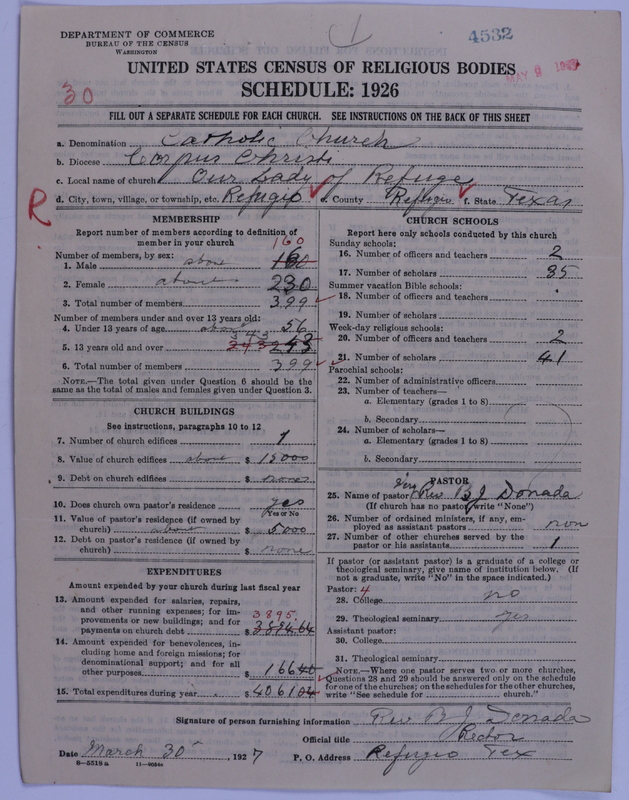 DEPARTMENT OF COMMERCE
BUREAU OF THE CENSUS
WASHINGTON
4532
UNITED STATES CENSUS OF RELIGIOUS BODIES
SCHEDULE: 1926
30
FILL OUT A SEPARATE SCHEDULE FOR EACH CHURCH. SEE INSTRUCTIONS ON THE BACK OF THIS SHEET
a. Denomination Catholic Church
b. Diocese Corpus Christi
c. Local name of church Our Lady of Refuge
d. City, town, village, or township, etc. Refugio e. County Refugio f. State Texas
R
MEMBERSHIP
Report number of members according to definition of member in your church
Number of members, by sex: 160
1. Male above
2. Female about 230
3. Total number of members 399
Number of members under and over 13 years old:
4. Under 13 years of age about 56
343
5. 13 years old and over 243
6. Total number of members 399
NOTE.—The total given under Question 6 should be the same as the total of males and females given under Question 3.
CHURCH BUILDINGS
See instructions, paragraphs 10 to 12
7. Number of church edifices 1
8. Value of church edifices about $ 15000
9. Debt on church edifices $ none
10. Does church own pastor's residence yes
Yes or No
11. Value of pastor's residence (if owned by church) about $ 5000
12. Debt on pastor's residence (if owned by church) $ none
EXPENDITURES
Amount expended by your church during last fiscal year
13. Amount expended for salaries, repairs, and other running expenses; for improvements or new buildings; and for payments on church debt 3895 $ 3894.64
14. Amount expended for benevolences, including home and foreign missions; for denominational support; and for all other purposes $ 16640
15. Total expenditures during year $ 406104
CHURCH SCHOOLS
Report here only schools conducted by this church
Sunday schools:
16. Number of officers and teachers 2
17. Number of scholars 85
Summer vacation Bible schools:
18. Number of officers and teachers
19. Number of scholars
Week-day religious schools:
20. Number of officers and teachers 2
21. Number of scholars 41
Parochial schools:
22. Number of administrative officers
23. Number of teachers—
a. Elementary (grades 1 to 8)
b. Secondary
24. Number of scholars—
a. Elementary (grades 1 to 8)
b. Secondary
PASTOR
25. Name of pastor Very Rev B J Donada
(If church has no pastor, write "None")
26. Number of ordained ministers, if any, employed as assistant pastors non
27. Number of other churches served by the pastor or his assistants 1
If pastor (or assistant pastor) is a graduate of a college or theological seminary, give name of institution below. (If not a graduate, write "No" in the space indicated.)
Pastor: 4
28. College no
29. Theological seminary yes
Assistant pastor:
30. College
31. Theological seminary
NOTE.—Where one pastor serves two or more churches, Questions 28 and 29 should be answered only on the schedule for one of the churches; on the schedules for the other churches, write "See schedule for church."
Signature of person furnishing information Rev B J Donada
Official title Rector
Date March 30 1927 P. O. Address Refugio Tex
8—5519 a